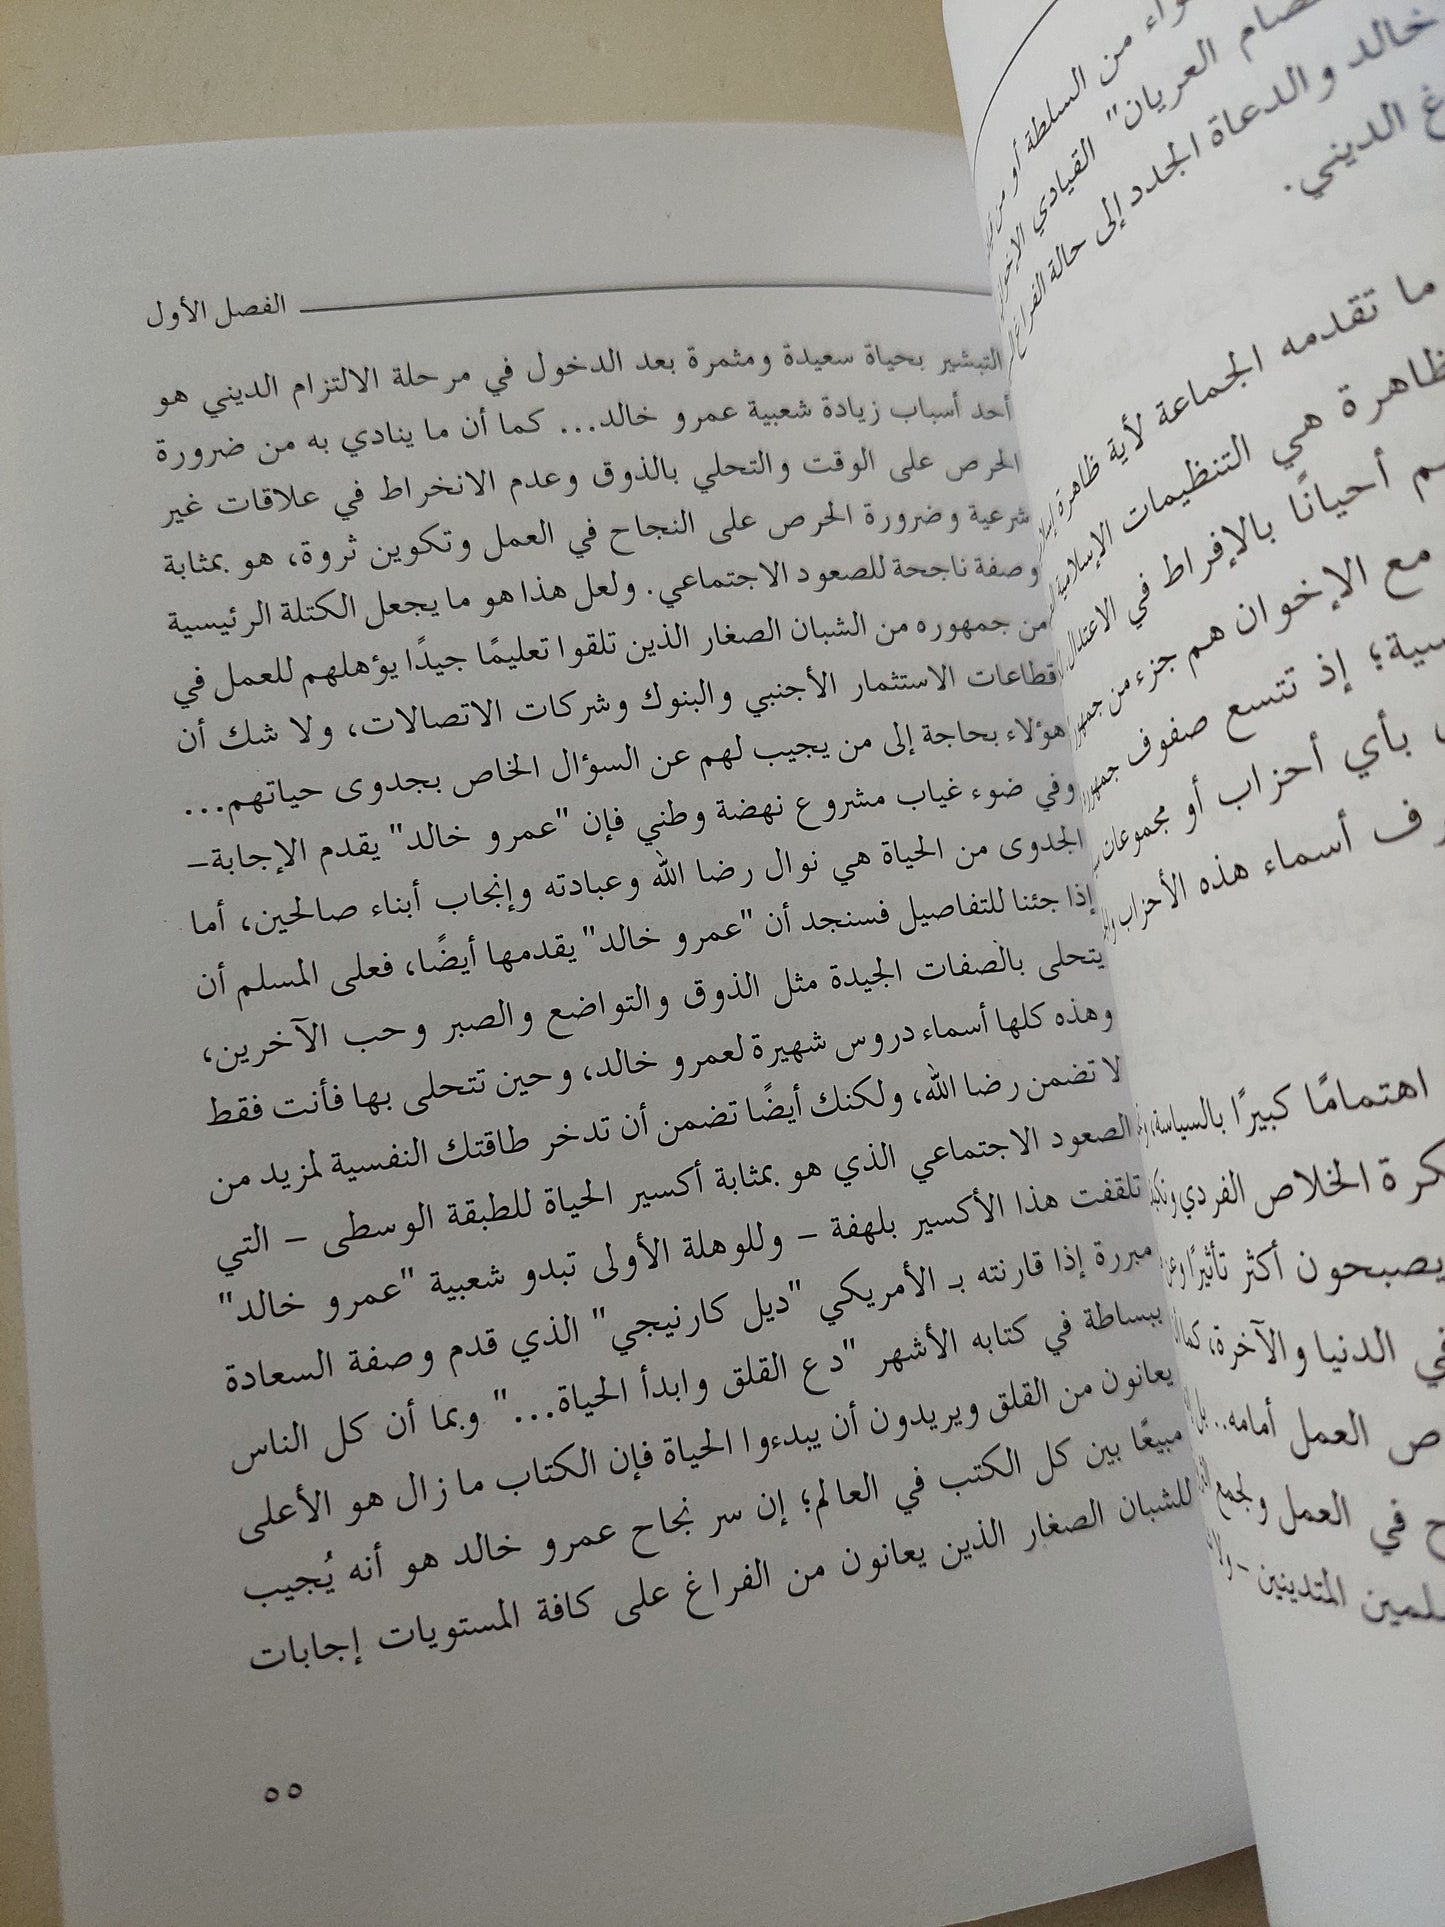 الفصل الأول
التبشير بحياة سعيدة ومثمرة بعد الدخول في مرحلة الالتزام الديني هو
أحد أسباب زيادة شعبية عمرو خالد... كما أن ما ينادي به من ضرورة
الحرص على الوقت والتحلي بالذوق وعدم الانخراط في علاقات غير
شرعية وضرورة الحرص على النجاح في العمل وتكوين ثروة، هو بمثابة
وصفة ناجحة للصعود الاجتماعي. ولعل هذا هو ما يجعل الكتلة الرئيسية
من جمهوره من الشبان الصغار الذين تلقوا تعليمًا جيدًا يؤهلهم للعمل في
قطاعات الاستثمار الأجنبي والبنوك وشركات الاتصالات، ولا شك أن
هؤلاء بحاجة إلى من يجيب لهم عن السؤال الخاص بجدوى حياتهم...
وفي ضوء غياب مشروع نهضة وطني فإن "عمرو خالد" يقدم الإجابة-
الجدوى من الحياة هي نوال رضا الله وعبادته وإنجاب أبناء صالحين، أما
إذا جئنا للتفاصيل فسنجد أن "عمرو خالد" يقدمها أيضًا، فعلى المسلم أن
يتحلى بالصفات الجيدة مثل الذوق والتواضع والصبر وحب الآخرين،
وهذه كلها أسماء دروس شهيرة لعمرو خالد، وحين تتحلى بها فأنت فقط
لا تضمن رضا الله، ولكنك أيضًا تضمن أن تدخر طاقتك النفسية لمزيد من
الصعود الاجتماعي الذي هو بمثابة أكسير الحياة للطبقة الوسطى - التي
تلقفت هذا الأكسير بلهفة - وللوهلة الأولى تبدو شعبية "عمرو خالد"
مبررة إذا قارنته بـ الأمريكي "ديل كارنيجي" الذي قدم وصفة السعادة
ببساطة في كتابه الأشهر "دع القلق وابدأ الحياة..." وبما أن كل الناس
يعانون من القلق ويريدون أن يبدءوا الحياة فإن الكتاب ما زال هو الأعلى
مبيعًا بين كل الكتب في العالم؛ إن سر نجاح عمرو خالد هو أنه يُجيب
للشبان الصغار الذين يعانون من الفراغ على كافة المستويات إجابات
٥٥
من السلطة أو من
العريان" القيادي
خالد والدعاة الجدد إلى حالة الفراغ
الديني.
ما تقدمه الجماعة لأية ظاهرة
هي التنظيمات الإسلامية
أحيانًا بالإفراط في الاعتدال
مع الإخوان هم جزء من
إذ تتسع صفوف
بأي أحزاب أو مجموعات
أسماء هذه الأحزاب
اهتمامًا كبيرًا بالسياسة،
الخلاص الفردي
يصبحون أكثر تأثيرًا
في الدنيا والآخرة، كما
العمل أمامه.. بل
في العمل ولجمع
المتدينين - ولا